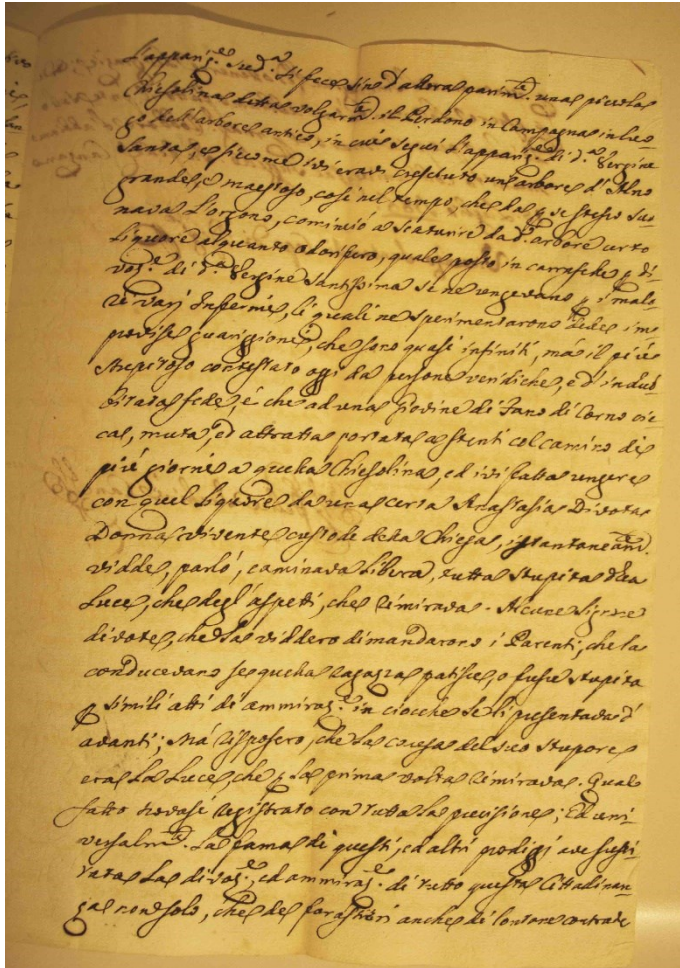 l'appariz.e sud.a si fece sin d'allora parim.te una piccola
Chiesolina detta volgarm.te il Perdono in Campagna in luo-
go dell'arbore antico, in cui seguì l'appariz.e di d.a Vergine
Santa, e siccome ivi era di cresciuto un'arbore d'Alno
grande, e maestoso, così nel tempo, che da p se stesso suo
nava l'orgono, cominciò a scaturire da d.o arbore certo
liquore alquanto odorifero, quale posto in carrafche p di-
voz.e di d.a Vergine Santissima se ne ungevano p i mali
varj Infermi, li quali ne sperimentarono im
provise guarigioni, che sono quasi infiniti, mà il più
strepitoso contestato oggi da persone veridiche, e d'indub
bitata fede, è che ad una Giovine di Fano di Corno cie
ca, muta, ed attratta portata a stenti col camino di
più giorni a quella Chiesolina, ed ivi fatta ungere
con quel liquore da una certa Anastasia Divota
Donna vivente custode della Chiesa, istantaneam.te
vidde, parlò, caminava libera, tutta stupita della
luce, che degl'aspetti, che rimirava. Alcune Signore
divote, che la viddero dimandarono i Parenti, che la
conducevano se quella ragazza patisce, o fusse stupita
p simili atti di ammiraz.e in ciocche se li presentava d'
avanti; Mà risposero, che la causa del suo stupore
era la luce, che p la prima volta rimirava. Quale
fatto trovasi registrato con tutta la precisione; Ed uni-
versalm.te la fama di questi, ed altri prodigj
la divoz.e, ed ammiraz.e di tutto questa Cittadinan-
za non solo, che de forastieri anche di lontane contrade